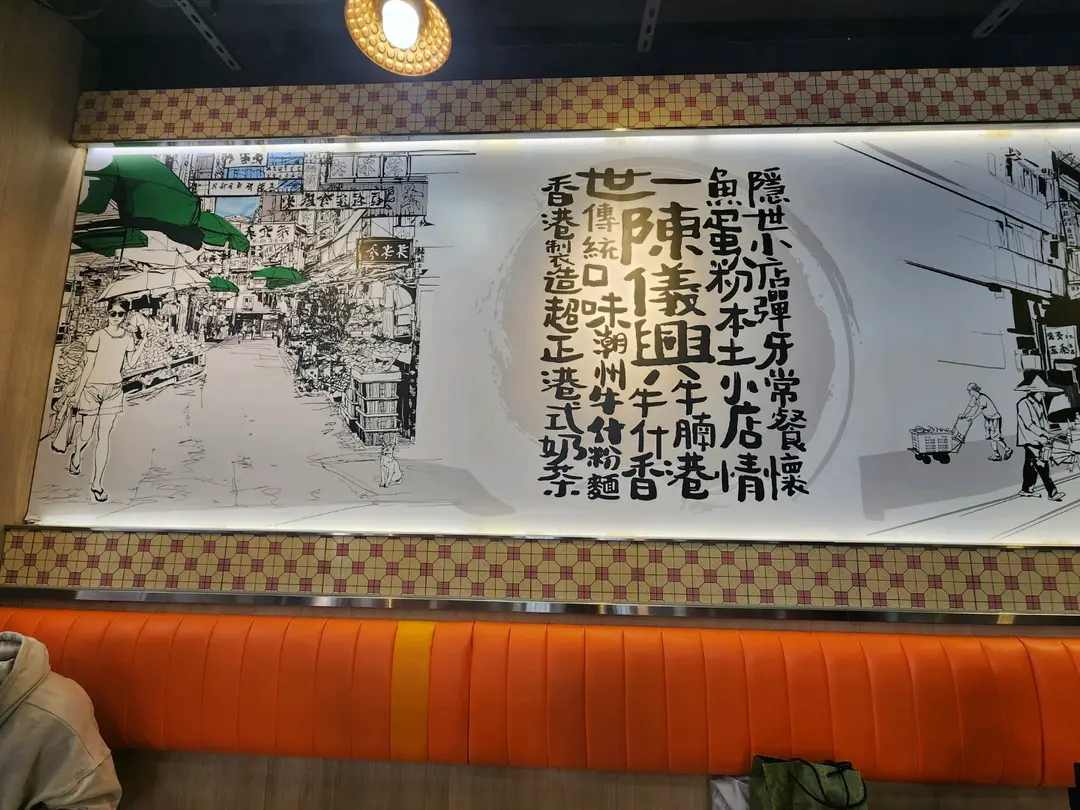 隱世小店彈牙常餐懷
魚蛋粉本土小店情
一陳儀興、牛腩港
、牛什香
世傳統口味潮州牛什粉麵
香港製造超正港式奶茶